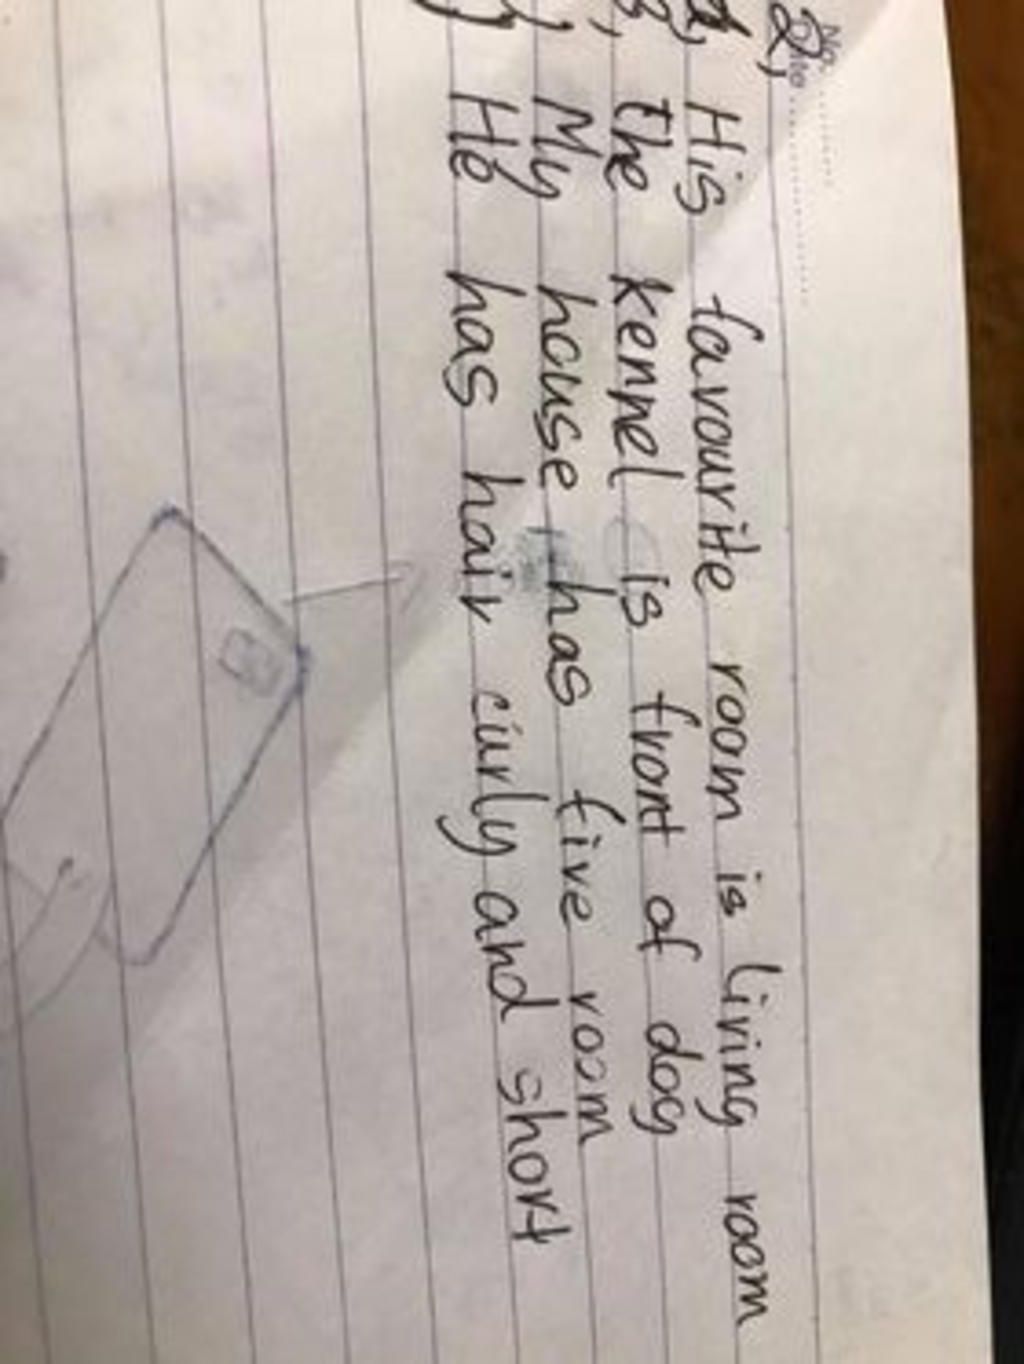 No
2,
His favourite room is living room
the kennel is front of dog
My house has five room
He has hair curly and short